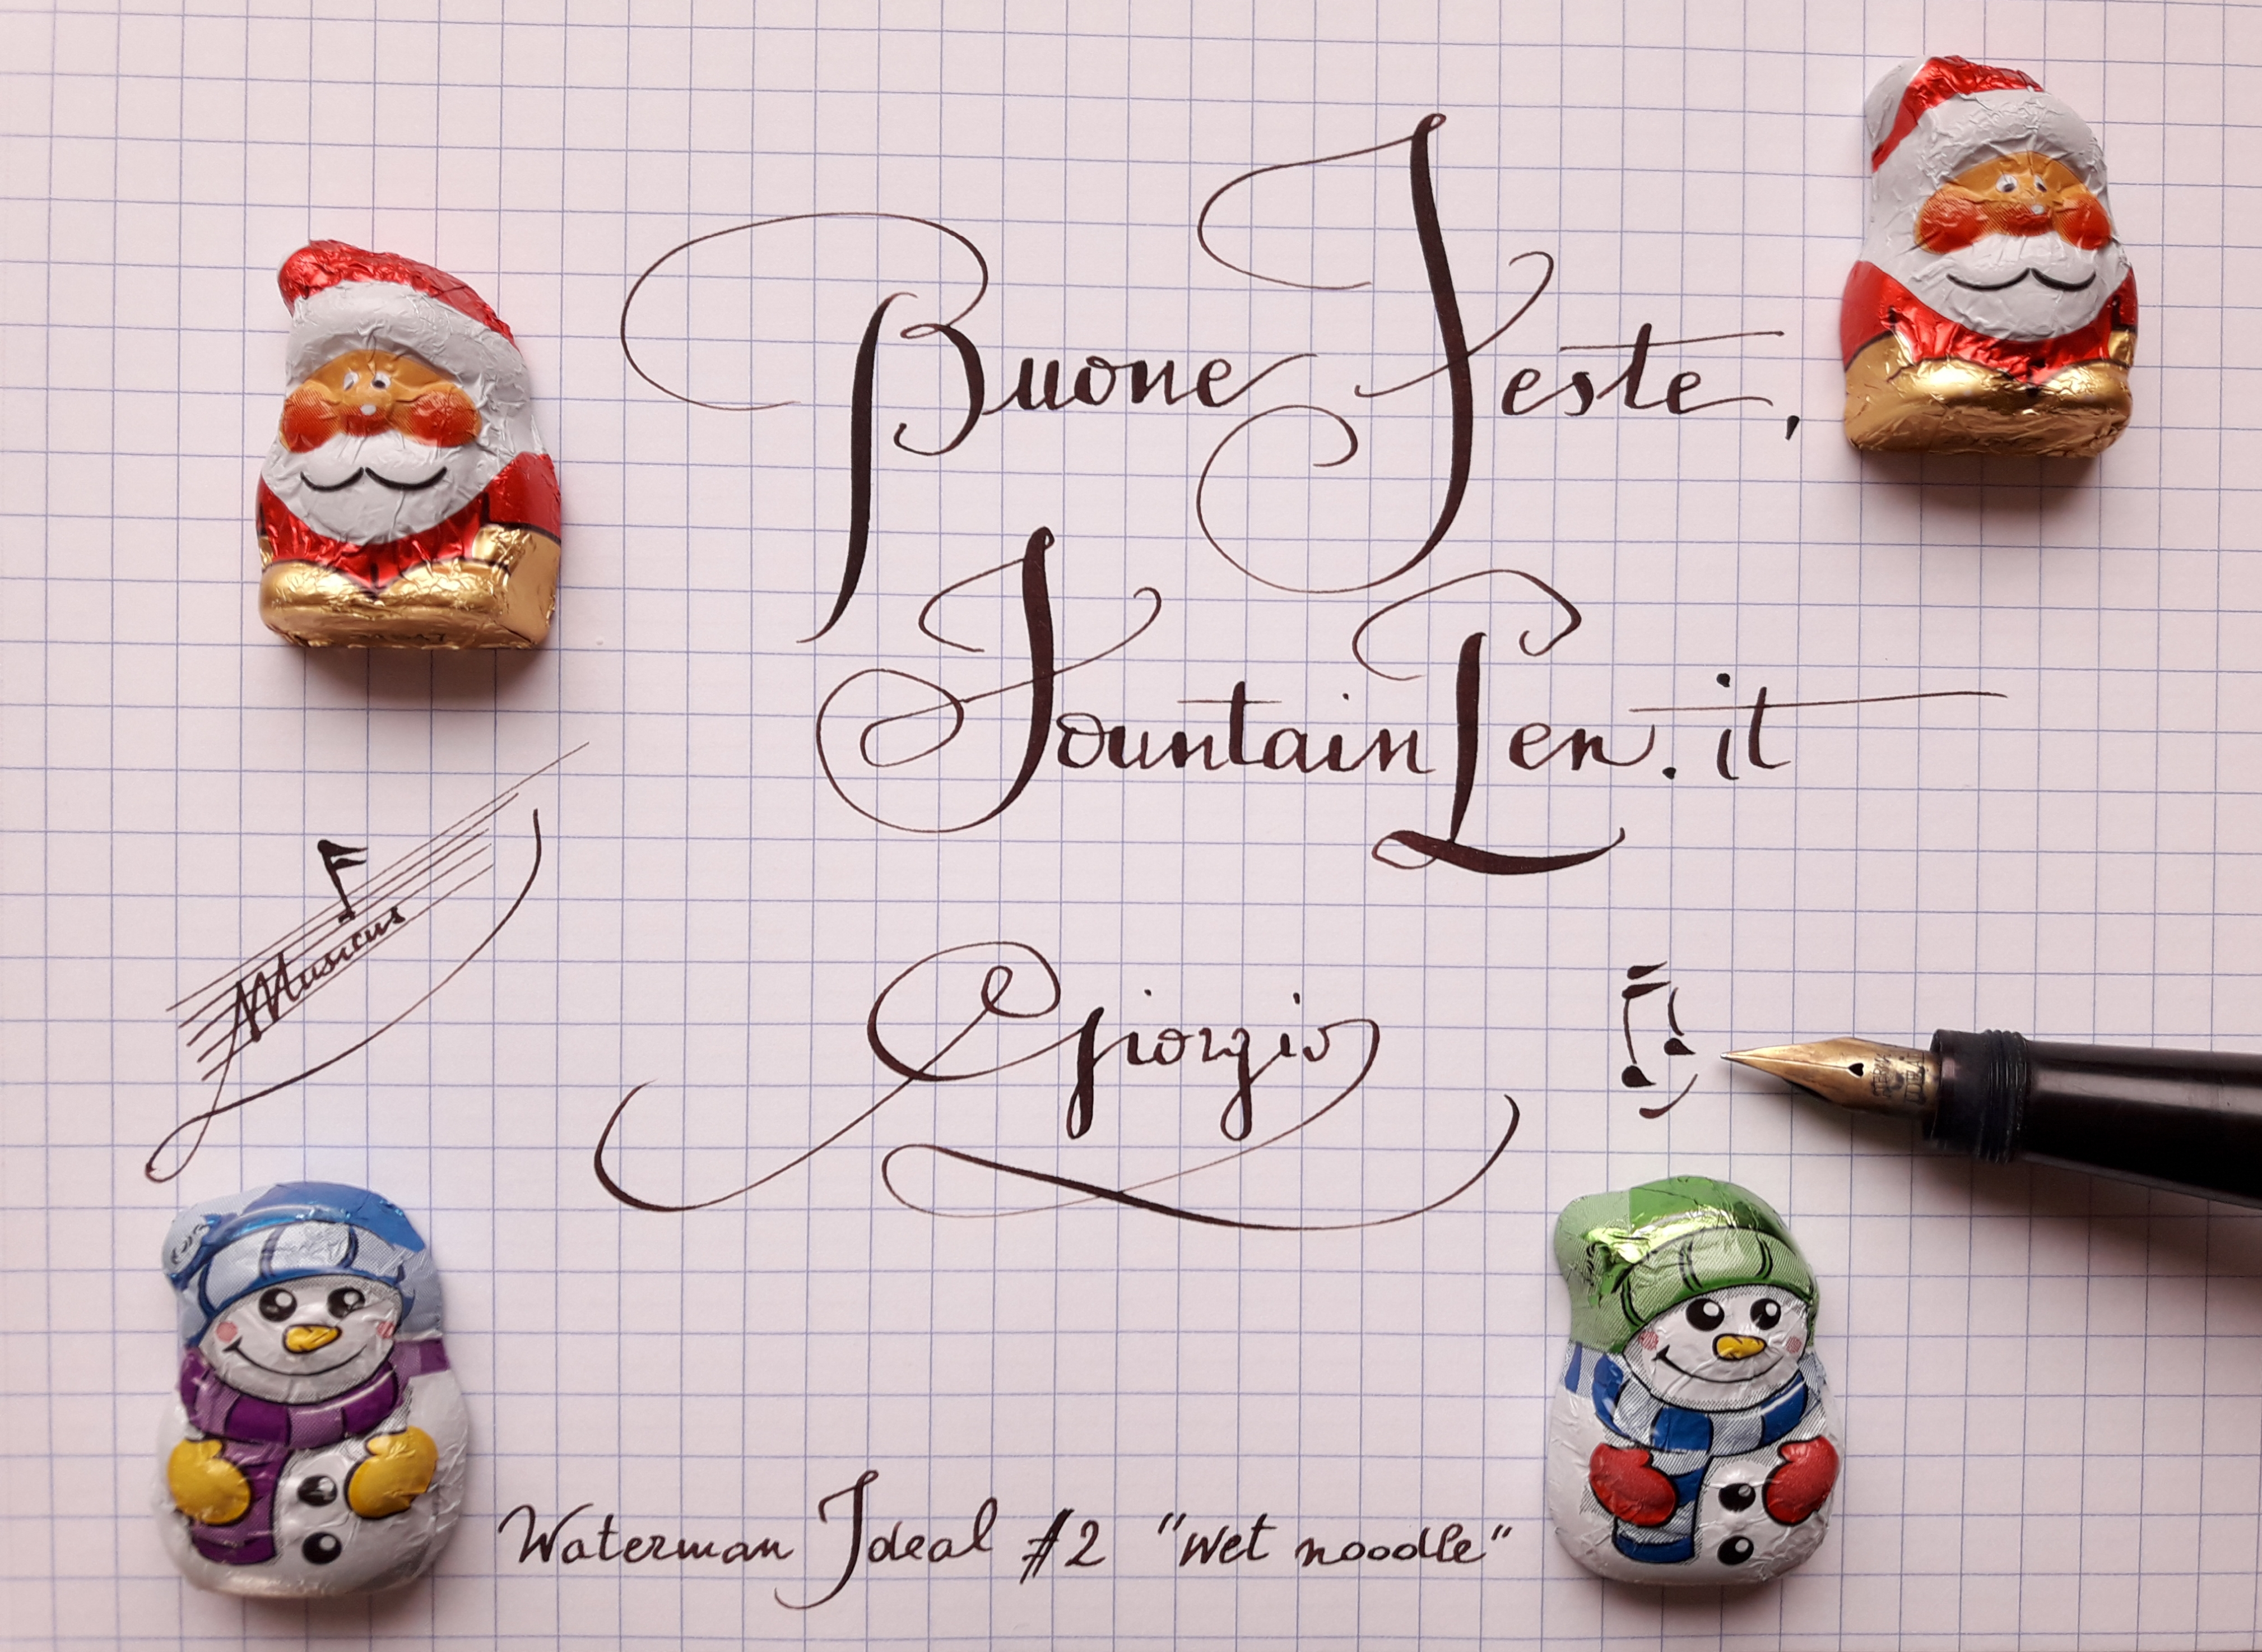 Buone Feste,
FountainPen.it
Musicus
Giorgio
Waterman Ideal #2 "wet noodle"